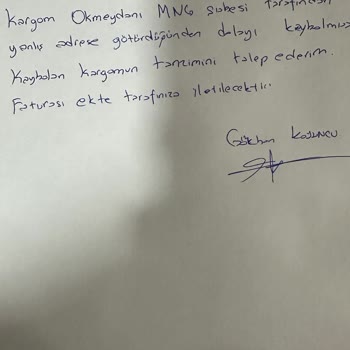 Kargom Okmeydanı MNG şubesi tarafından
yanlış adrese götürdüğünden dolayı kaybolmuş
Kaybolan kargomun tanzimini talep ederim.
Faturası ekte tarafınıza iletilecektir.
Gökhan